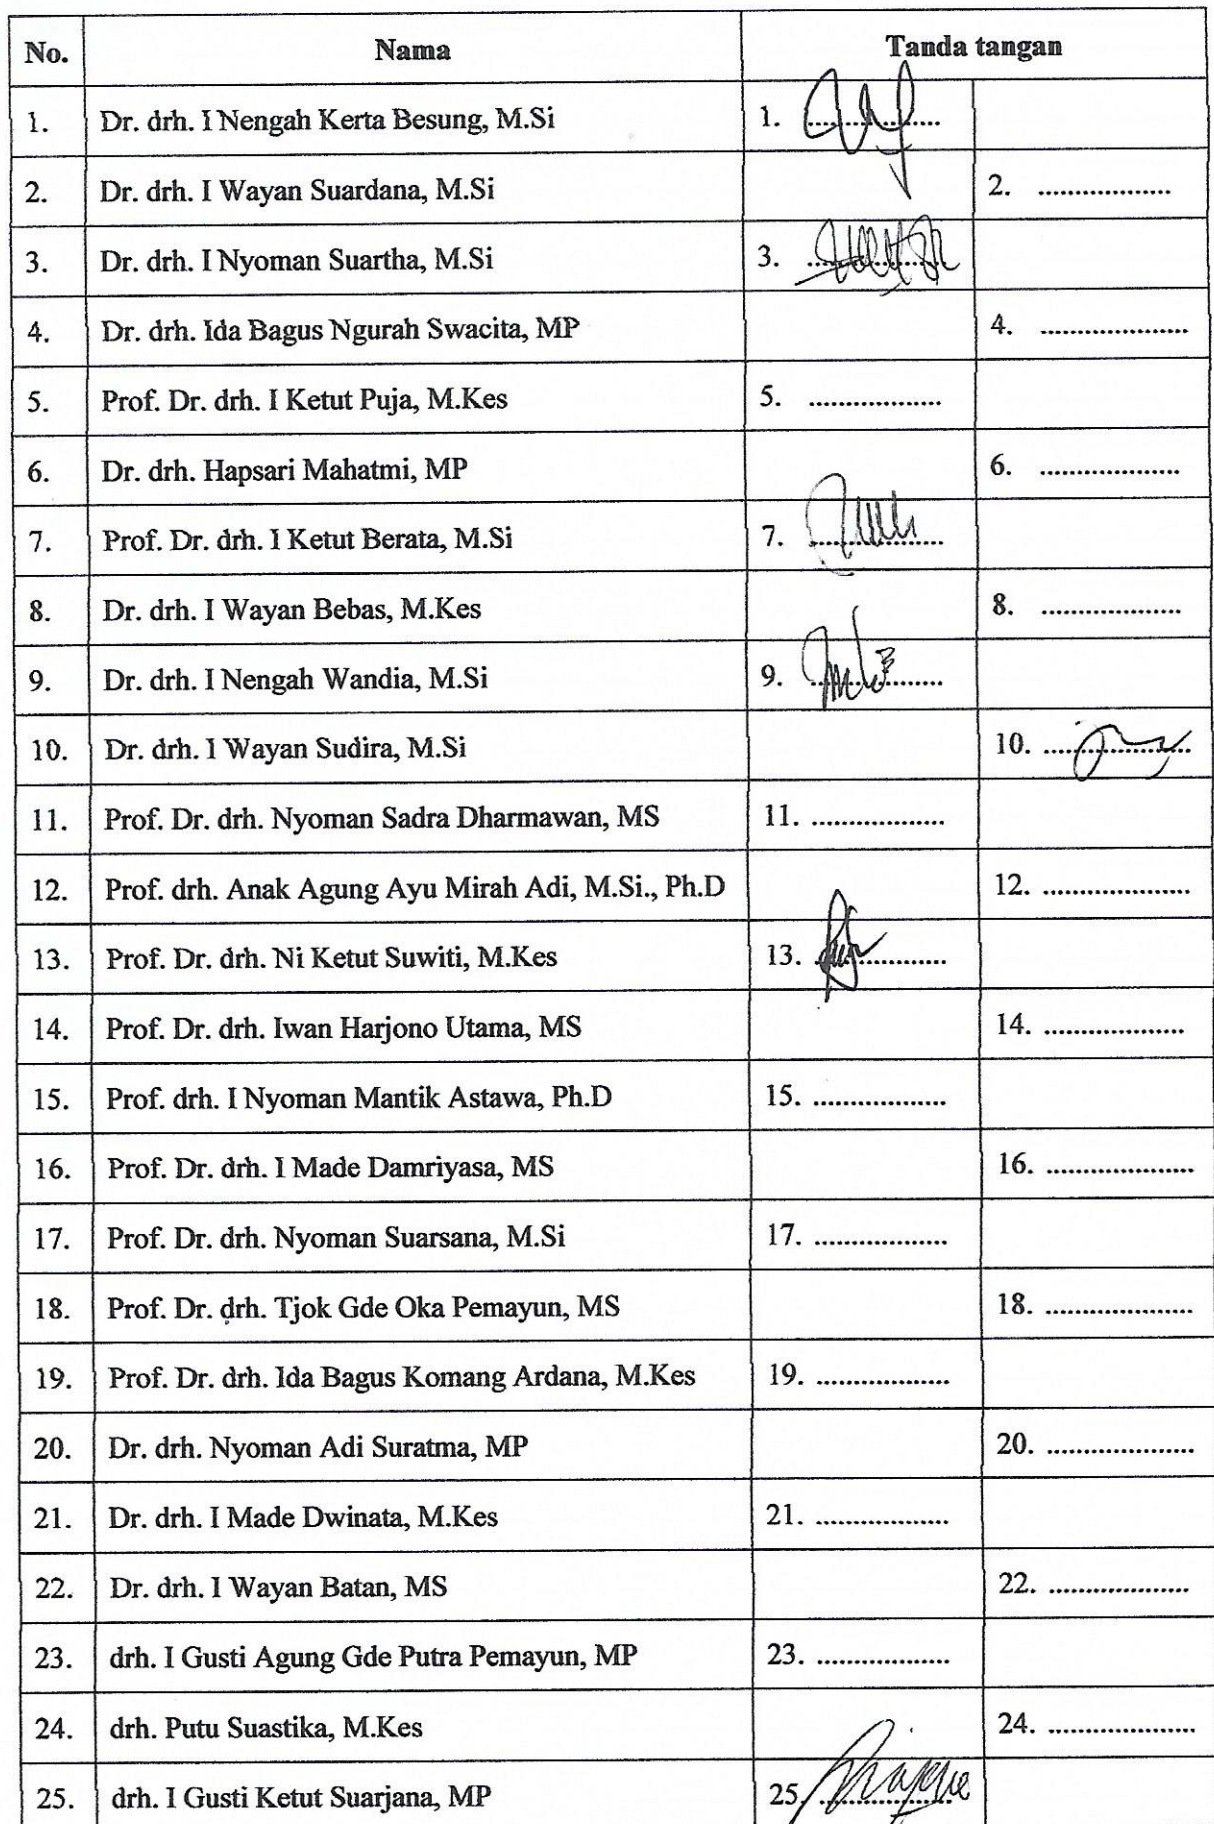 No. Nama Tanda tangan
1. Dr. drh. I Nengah Kerta Besung, M.Si 1. ..................
2. Dr. drh. I Wayan Suardana, M.Si 2. ..................
3. Dr. drh. I Nyoman Suartha, M.Si 3. ..................
4. Dr. drh. Ida Bagus Ngurah Swacita, MP 4. ..................
5. Prof. Dr. drh. I Ketut Puja, M.Kes 5. ..................
6. Dr. drh. Hapsari Mahatmi, MP 6. ..................
7. Prof. Dr. drh. I Ketut Berata, M.Si 7. ..................
8. Dr. drh. I Wayan Bebas, M.Kes 8. ..................
9. Dr. drh. I Nengah Wandia, M.Si 9. ..................
10. Dr. drh. I Wayan Sudira, M.Si 10. ..................
11. Prof. Dr. drh. Nyoman Sadra Dharmawan, MS 11. ..................
12. Prof. drh. Anak Agung Ayu Mirah Adi, M.Si., Ph.D 12. ..................
13. Prof. Dr. drh. Ni Ketut Suwiti, M.Kes 13. ..................
14. Prof. Dr. drh. Iwan Harjono Utama, MS 14. ..................
15. Prof. drh. I Nyoman Mantik Astawa, Ph.D 15. ..................
16. Prof. Dr. drh. I Made Damriyasa, MS 16. ..................
17. Prof. Dr. drh. Nyoman Suarsana, M.Si 17. ..................
18. Prof. Dr. drh. Tjok Gde Oka Pemayun, MS 18. ..................
19. Prof. Dr. drh. Ida Bagus Komang Ardana, M.Kes 19. ..................
20. Dr. drh. Nyoman Adi Suratma, MP 20. ..................
21. Dr. drh. I Made Dwinata, M.Kes 21. ..................
22. Dr. drh. I Wayan Batan, MS 22. ..................
23. drh. I Gusti Agung Gde Putra Pemayun, MP 23. ..................
24. drh. Putu Suastika, M.Kes 24. ..................
25. drh. I Gusti Ketut Suarjana, MP 25. ..................